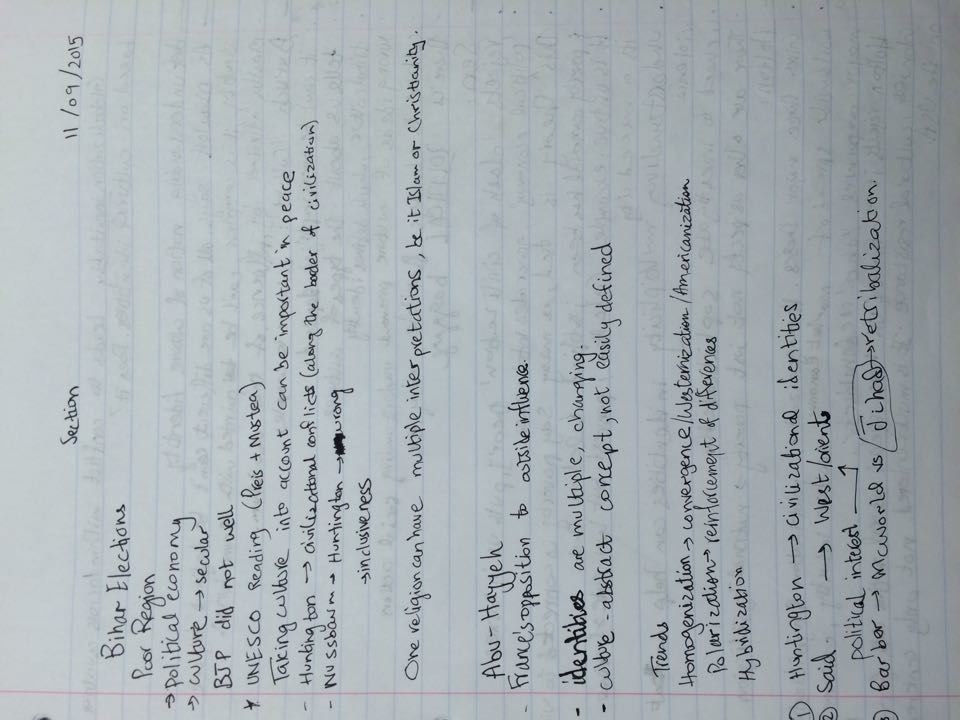 Section 11/09/2015
Bihar Elections
Poor Region
→ Political economy
→ Culture → secular
BJP did not well
* UNESCO Reading (Preis + Mustea)
Taking culture into account can be important in peace
- Huntington → civilizational conflicts (along the border of civilization)
- Nussbaum → Huntington → wrong
→ inclusiveness
One religion can have multiple interpretations, be it Islam or Christianity.
Abu-Hayyeh
- France's opposition to outside influence.
- identities are multiple, changing.
- culture - abstract concept, not easily defined
Trends
Homogenization → convergence/Westernization/Americanization
Polarization → reinforcement of differences
Hybridization
① Huntington → civilizational identities
② Said. → West/orient
political interest
③ Barber → McWorld vs Jihad → retribalization.